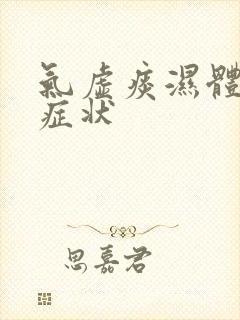 氣虛痰濕體
症状
思嘉君